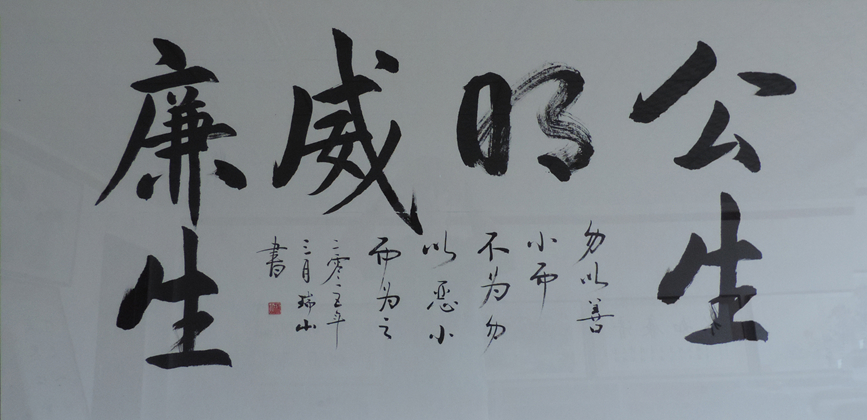 公生
明
廉生
威
勿以善
小而
不为勿
以恶小
而为之
二零一五年
三月瑞山
書